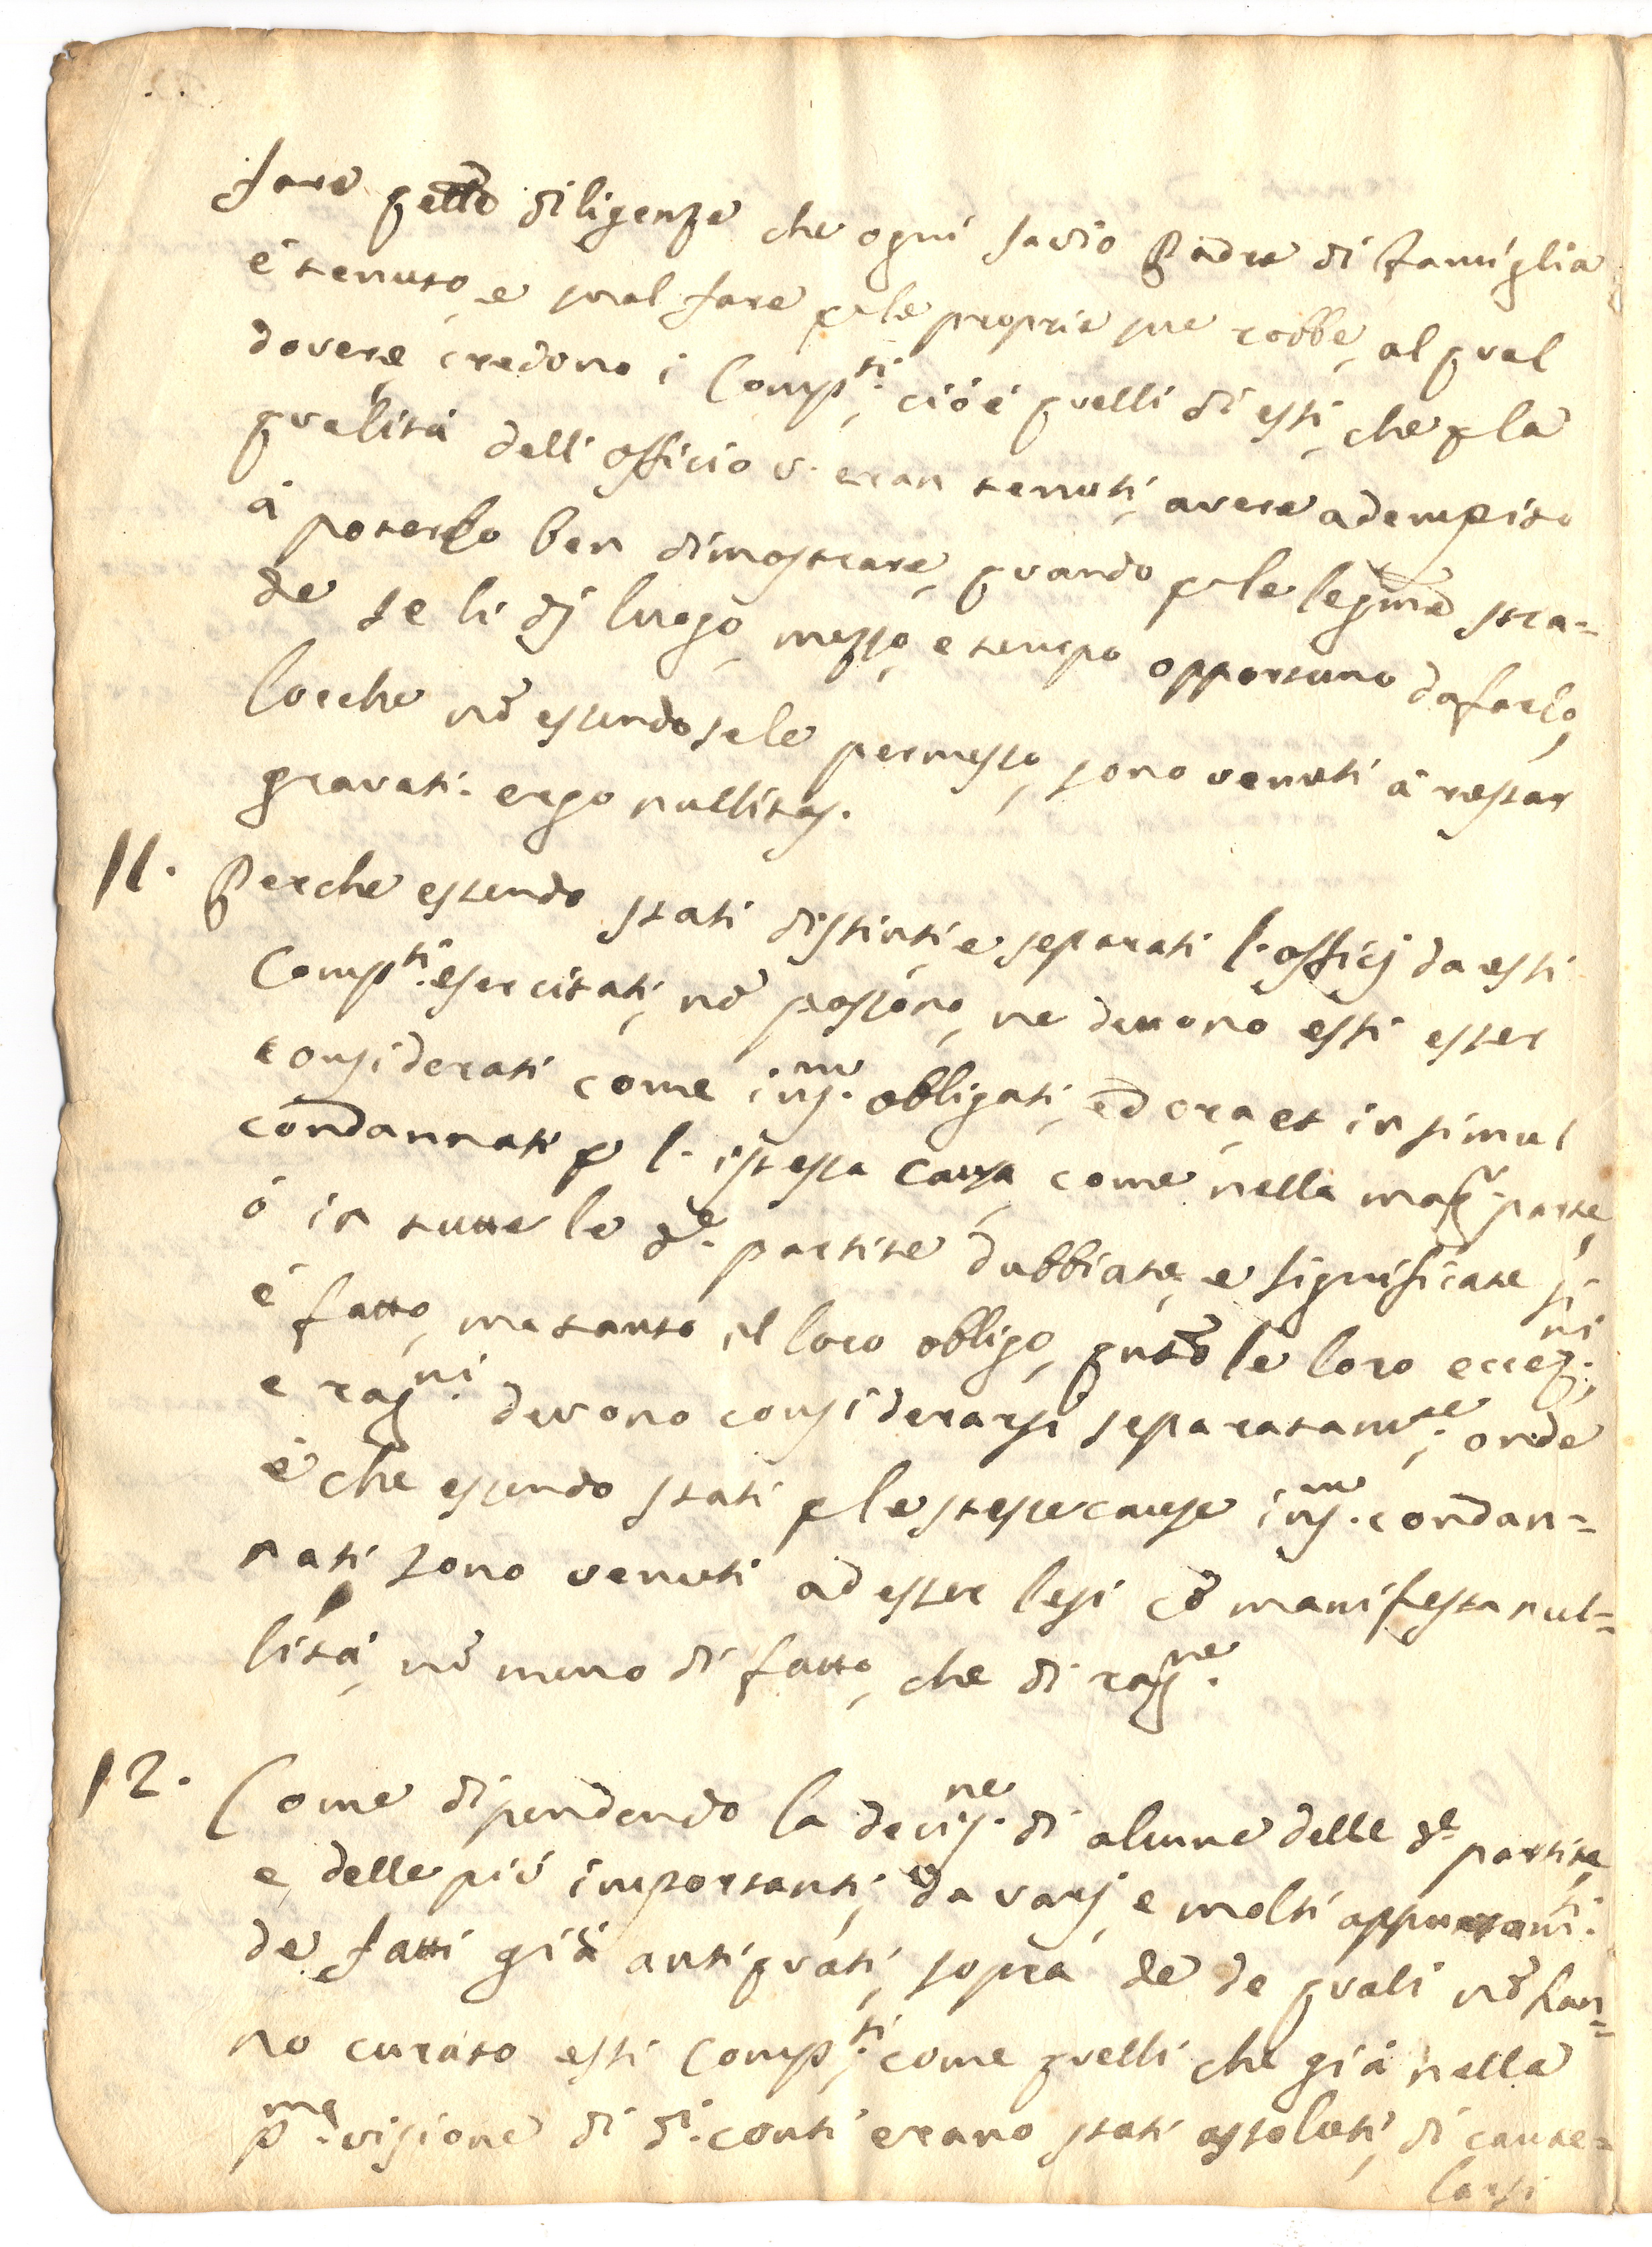 fare qello diligenze che ogni savio Padre di famiglia
é tenuto, e sual fare p le proprie sue robbe, al qual
dovere credono i Comp.ti, cióé quelli di essi, che p la
qualitá delli officio v' eran tenuti, avere adempito
á poterlo ben dimostrare, quando p le legme stra=
de se li dj luogo, mezzo, e tempo opportuno da farlo,
locche nõ essendosele permesso, sono venuti á restar
gravati. ergo nullitas.
11. Perche essendo stati distinti, e separati l'officj da essi
Comp.ti esercitati, nõ possono, ne devono essi esser
considerati come ins.me obligati, ed ora, et in simul
condannati p l'istessa causa, come nella mag.r parte,
ó in tutte le d.e partite dubbiate, e significate si
é fatto, ma tanto il loro obligo, qnto le loro eccez.ni,
e rag.ni devono considerarsi separatam.te; onde
é che essendo stati p le stesse cause ins.me condan=
nati sono venuti ad esser lesi cõ manifesta nul=
litá, nõ meno di fatto, che di rag.ne
12. Come dipendendo la decis.ne di alcune delle d.e partite,
e delle piú importanti, da varj, e molti appuram.ti
de fatti giá antiquati, sopra de de quali nõ han=
no curato essi Comp.ti, come quelli che giá nella
p.ma visione di d.i conti erano stati assoluti, di caute=
larsi